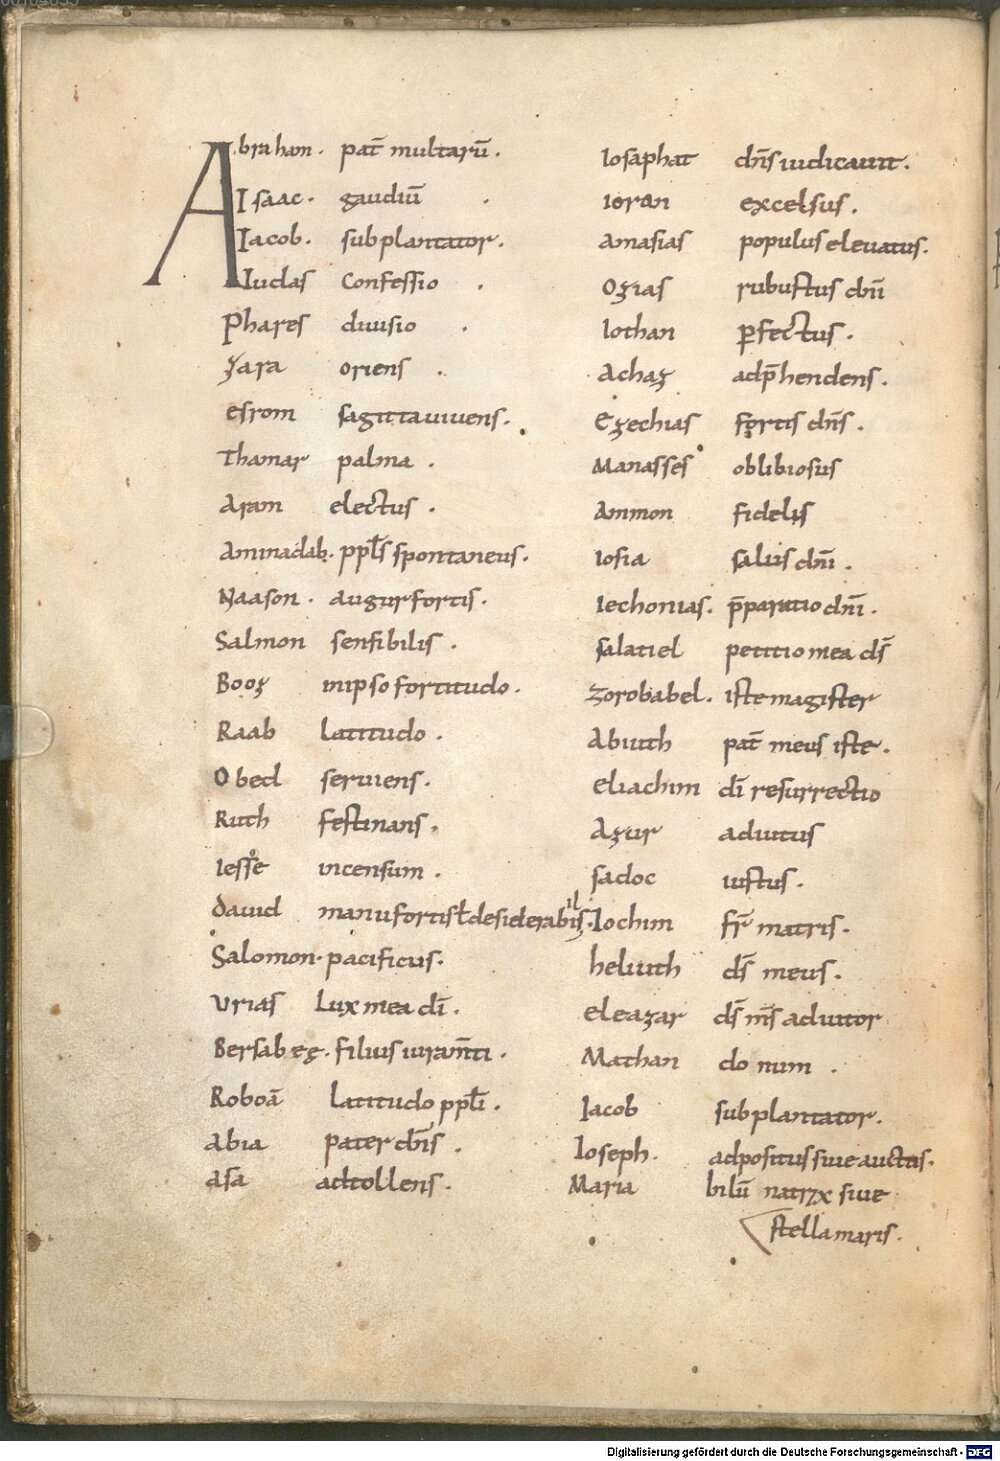 Abraham. pat̄ multarū.
Isaac. gaudiū.
Iacob. subplantator.
Iudas Confessio.
Phares diuisio.
Zara oriens.
esrom sagitta uiuens.
Thamar palma.
Aram electus.
Aminadab. ppl̄s spontaneus.
Naason. augur fortis.
Salmon sensibilis.
Booz in ipso fortitudo.
Raab Latitudo.
Obed seruiens.
Ruth festinans.
Iesse incensum.
dauid manu fortis ł desiderabilis.
Salomon. pacificus.
Vrias Lux mea dī.
Bersabeę. filius iuram̄ti.
Roboā Latitudo ppl̄i.
Abia pater dn̄s.
Asa adtollens.
Iosaphat dn̄s iudicauit.
Ioran excelsus.
Amasias populus eleuatus.
Ozias rubustus dn̄i
Iothan ꝑfectus.
Achaz adp̄hendens.
Ezechias fortis dn̄s.
Manasses obliбiosus
Ammon fidelis
Iosia salus dn̄i.
Iechonias. p̄paratio dn̄i.
Salatiel petitio mea ds̄
Zorobabel. iste magister
Abiuth pat̄ meus iste.
eliachim dī resurrectio
Azur adiutus
Sadoc iustus.
Iochim fr̄ matris.
heliuth ds̄ meus.
eleazar ds̄ ms̄ adiutor
Mathan donum.
Iacob subplantator.
Ioseph. adpositus siue auctus.
Maria siue
stella maris.
Digitalisierung gefördert durch die Deutsche Forschungsgemeinschaft - DFG